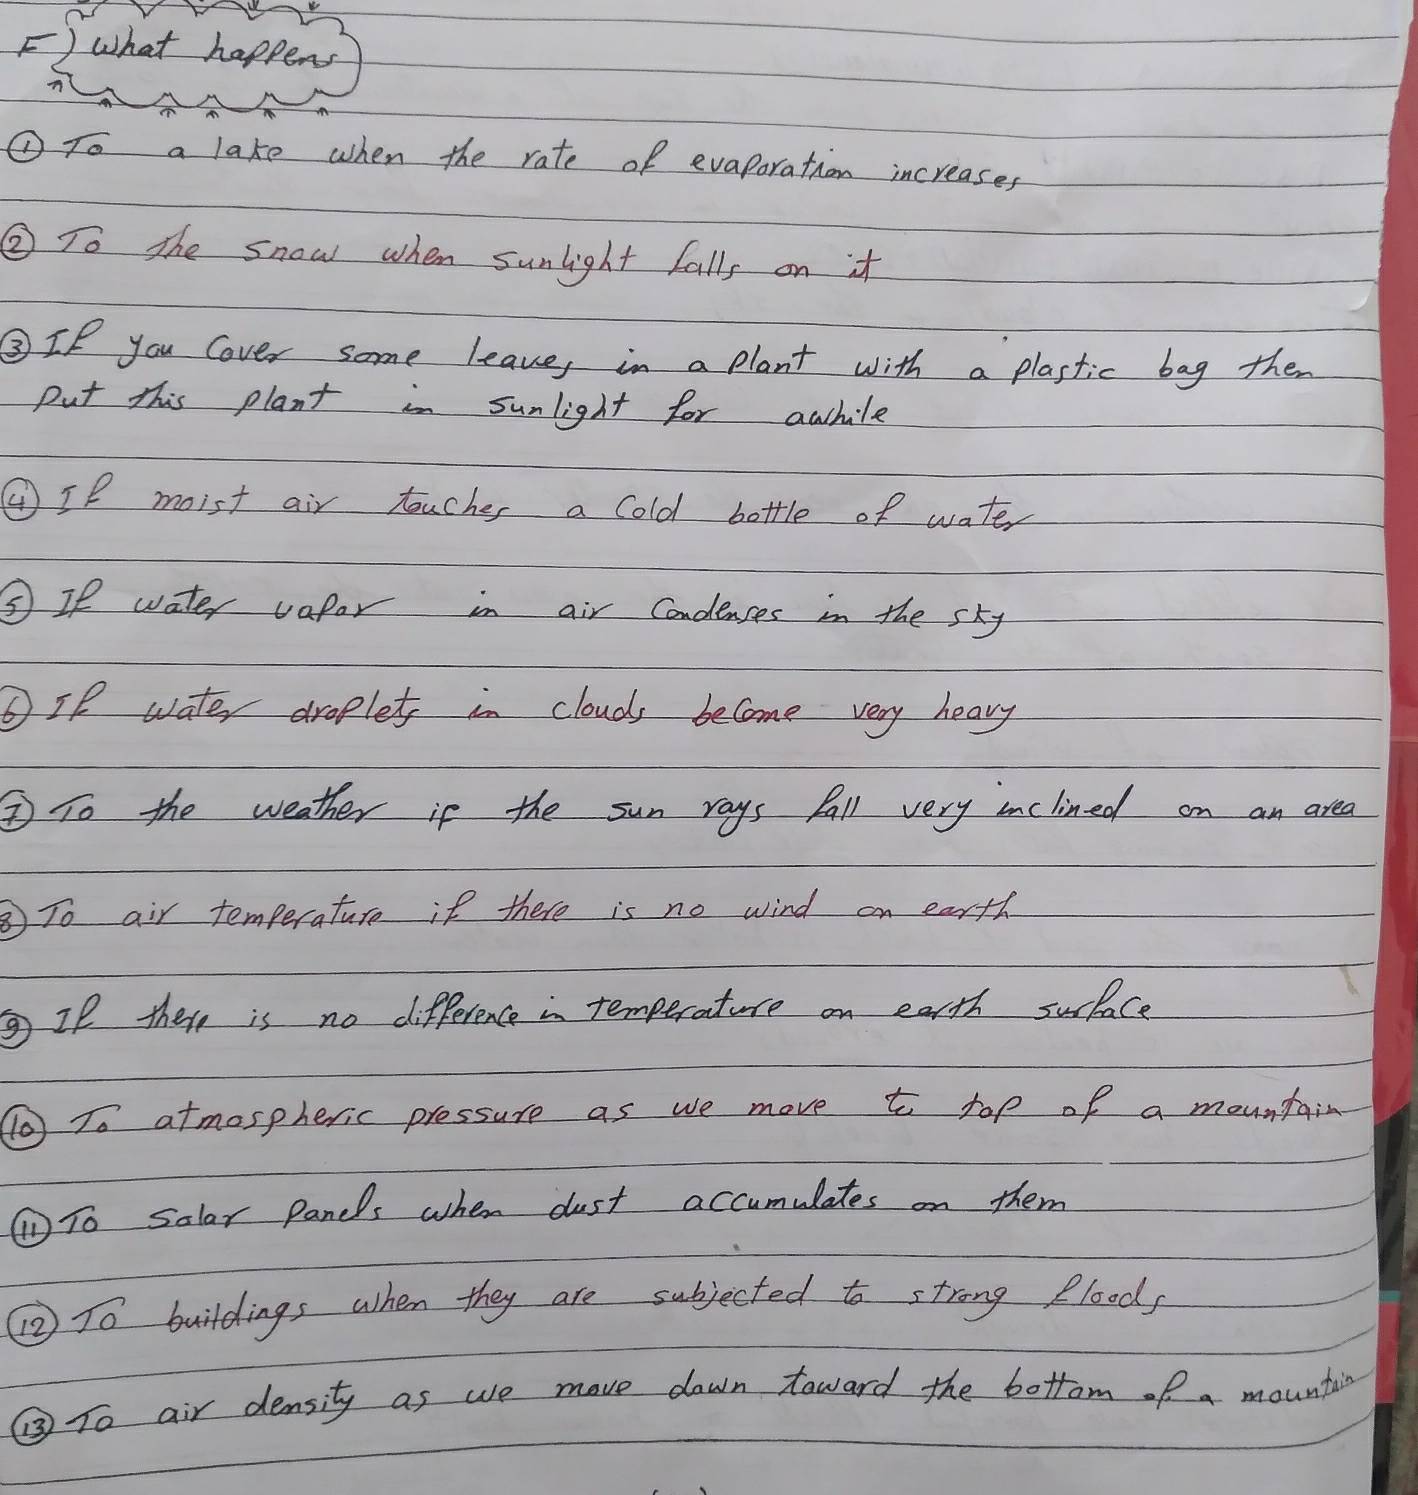 F) What happens
① To a lake when the rate of evaporation increases
② To the snow when sunlight falls on it
③ If you cover some leaves in a plant with a plastic bag then
put this plant in sunlight for awhile
④ If moist air touches a cold bottle of water
⑤ If water vapor in air condenses in the sky
⑥ If water droplets in clouds become very heavy
⑦ To the weather if the sun rays fall very inclined on an area
⑧ To air temperature if there is no wind on earth
⑨ If there is no difference in temperature on earth surface
⑩ To atmospheric pressure as we move to top of a mountain
⑪ To solar panels when dust accumulates on them
⑫ To buildings when they are subjected to strong floods
⑬ To air density as we move down toward the bottom of a mountain